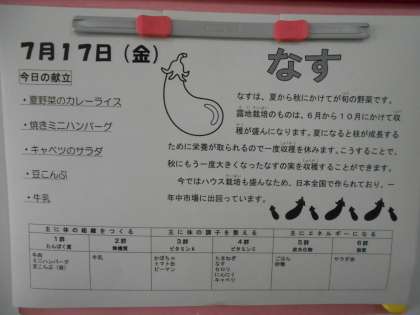 7月17日（金）
なす
今日の献立
・夏野菜のカレーライス
・焼きミニハンバーグ
・キャベツのサラダ
・豆こんぶ
・牛乳
なすは、夏から秋にかけてが旬の野菜です。
露地栽培のものは、6月から10月にかけて収
穫が盛んになります。夏になると枝が成長する
ために栄養が取られるので一度収穫を休みます。こうすることで、
秋にもう一度大きくなったなすの実を収穫することができます。
今ではハウス栽培も盛んなため、日本全国で作られており、一
年中市場に出回っています。
主に体の組織をつくる
主に体の調子を整える
主にエネルギーになる
1群
たんぱく質
2群
無機質
3群
ビタミンA
4群
ビタミンC
5群
炭水化物
6群
脂質
牛肉
ミニハンバーグ
豆こんぶ（豆）
牛乳
かぼちゃ
トマト缶
ピーマン
たまねぎ
なす
セロリ
にんにく
キャベツ
ごはん
砂糖
サラダ油